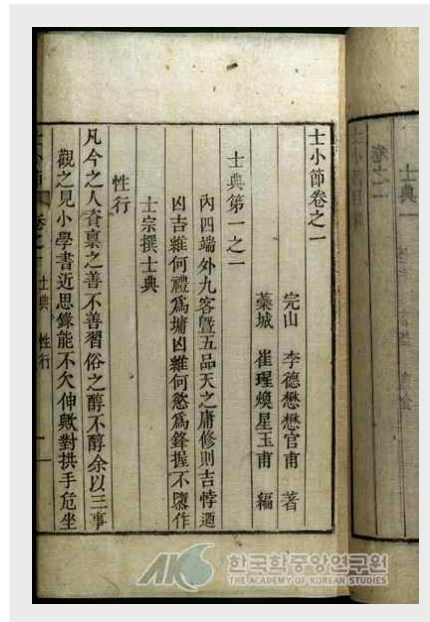 士小節卷之一
完山 李德懋懋官甫 著
藥城 崔瑆煥星玉甫 編
士典第一之一
內四端外九容曁五品天之庸修則吉悖迺
凶吉雜何禮爲墉凶雜何慾爲鋒握不墮作
士宗撰士典
性行
凡今之人資稟之善不善習俗之醇不醇余以三事
觀之見小學書近思錄能不欠伸歟對拱手危坐
士小節 卷之一 士典 性行 一
士典一
卷之一
AKS 한국학중앙연구원
THE ACADEMY OF KOREAN STUDIES